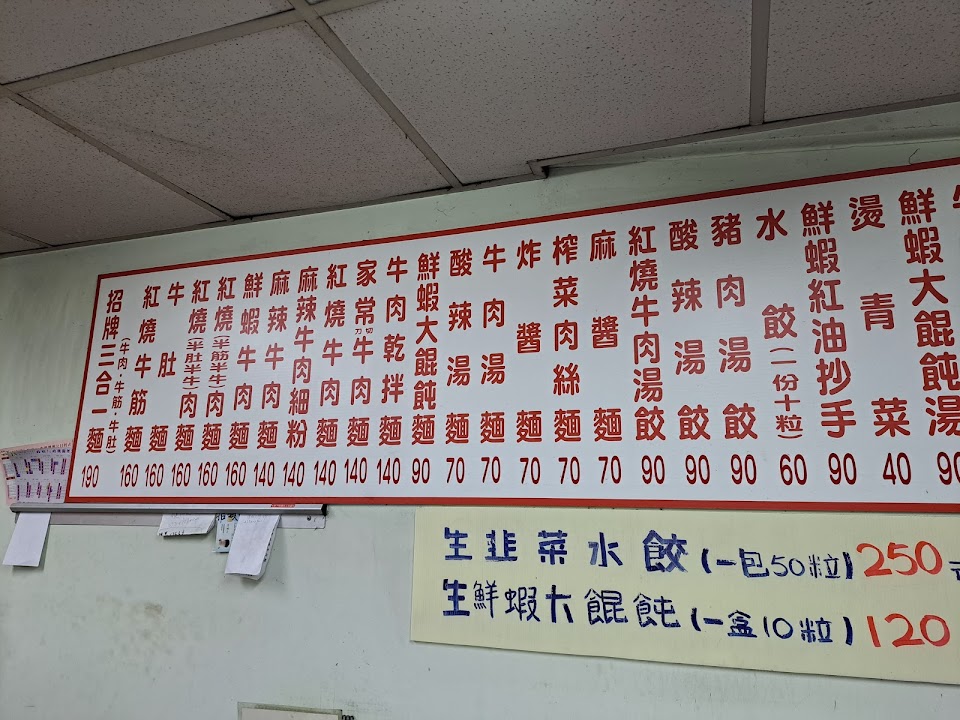 招牌三合一麵(牛肉·牛筋·牛肚)190
紅燒牛筋麵160
牛肚麵160
紅燒(半肚半牛)肉麵160
紅燒(半筋半牛)肉麵160
鮮蝦牛肉麵160
麻辣牛肉麵140
麻辣牛肉細粉140
紅燒牛肉麵140
家常刀切牛肉麵140
牛肉乾拌麵140
鮮蝦大餛飩麵90
酸辣湯麵70
牛肉湯麵70
炸醬麵70
榨菜肉絲麵70
麻醬麵70
紅燒牛肉湯餃90
酸辣湯餃90
豬肉湯餃90
水餃(一份十粒)60
鮮蝦紅油抄手90
燙青菜40
鮮蝦大餛飩湯90
生韭菜水餃(一包50粒)250
生鮮蝦大餛飩(一盒10粒)120